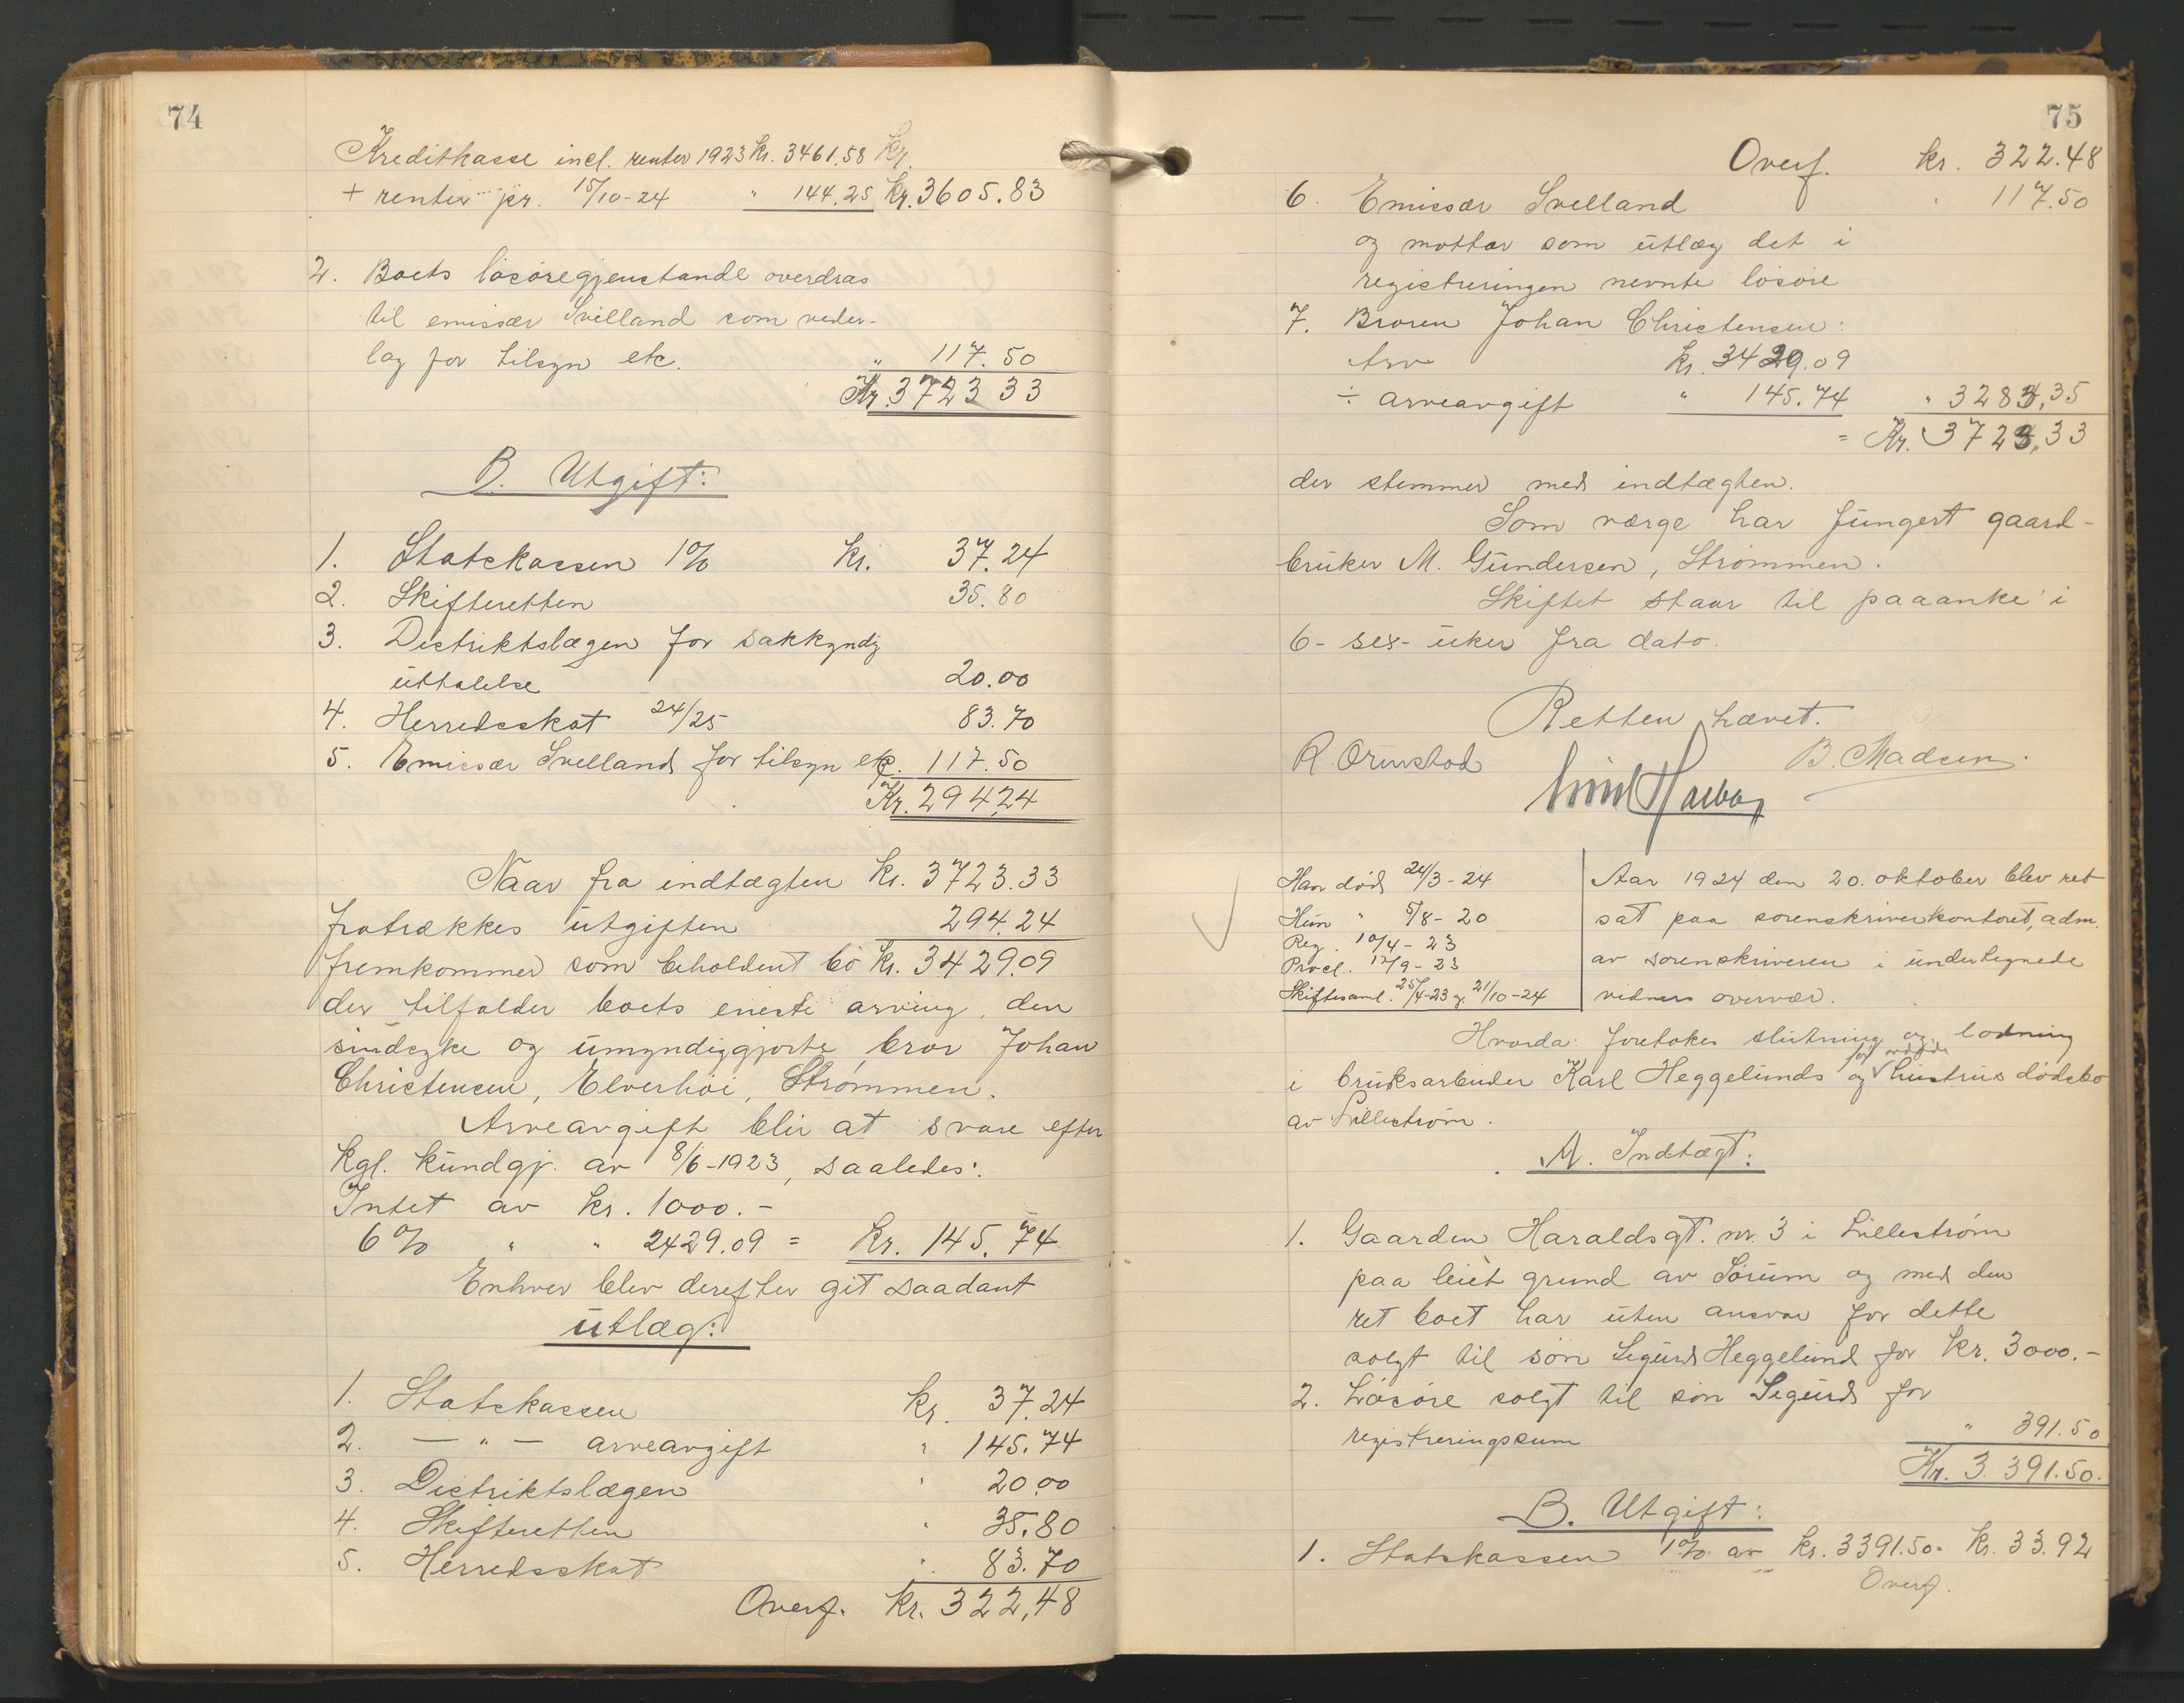 74
Kreditkasse incl. renter 1923 Kr. 3461.58 Kr.
+ renter pr. 15/10-24 " 144.25 Kr. 3605.83
2. Boets løsøregjenstande overdras
til emissær Svelland som veder-
lag for tilsyn etc. " 117.50
Kr. 3723 33
B. Utgift:
1. Statskassen 1% Kr. 37.24
2. Skifteretten 35.80
3. Distriktslægen for sakkyndig
uttalelse 20.00
4. Herredsskat 24/25 83.70
5. Emissær Svelland for tilsyn etc. 117.50
Kr. 294,24
Naar fra indtægten Kr. 3723.33
fratrækkes utgiften 294.24
fremkommer som beholdent bo Kr. 3429.09
der tilfalder boets eneste arving, den
sindsyke og umyndiggjorte bror Johan
Christensen, Elverhøi, Strømmen.
Arveavgift blir at svare efter
Kgl. kundgj. av 8/6-1923, saaledes:
Intet av kr. 1000.-
6% " " 2429.09 = Kr. 145.74
Enhver blev derefter git saadant
utlæg:
1. Statskassen Kr. 37.24
2. — " — arveavgift " 145.74
3. Distriktslægen " 20.00
4. Skifteretten " 35.80
5. Herredsskat " 83.70
Overf. Kr. 322,48
75
Overf. kr. 322.48
6. Emissær Svelland " 117.50
og mottar som utlæg det i
registreringen nevnte løsøre
7. Broren Johan Christensen:
Arv kr. 3429.09
÷ arveavgift " 145.74 " 3283,35
= Kr. 3723,33
der stemmer med indtægten.
Som værge har fungert gaard-
bruker M. Gundersen, Strømmen.
Skiftet staar til paaanke i
6- sex- uker fra dato.
Retten hævet.
R. Ormstad B. Madsen.
Han død 24/3-24
Hun " 5/8-20
Reg. 10/4-23
Procl. 17/9-23
Skiftesaml. 25/4-23 og 21/10-24
Aar 1924 den 20. oktober blev ret
sat paa sorenskriverkontoret, adm.
av sorenskriveren i undertegnede
vidners overvær.
Hvorda: foretokes slutning og lodning
i bruksarbeider Karl Heggelunds og hustrus dødsbo
av Lillestrøm.
A. Indtægt:
1. Gaarden Haraldsgt. nr. 3 i Lillestrøm
paa leiet grund av Sørum og med den
ret boet har uten ansvar for dette
solgt til søn Sigurd Heggelund for Kr. 3000.-
2. Løsøre solgt til søn Sigurd for
registreringssum " 391.50
Kr. 3 391.50.
B. Utgift:
1. Statskassen 1% av Kr. 3391.50 = Kr. 33.92
Overf.